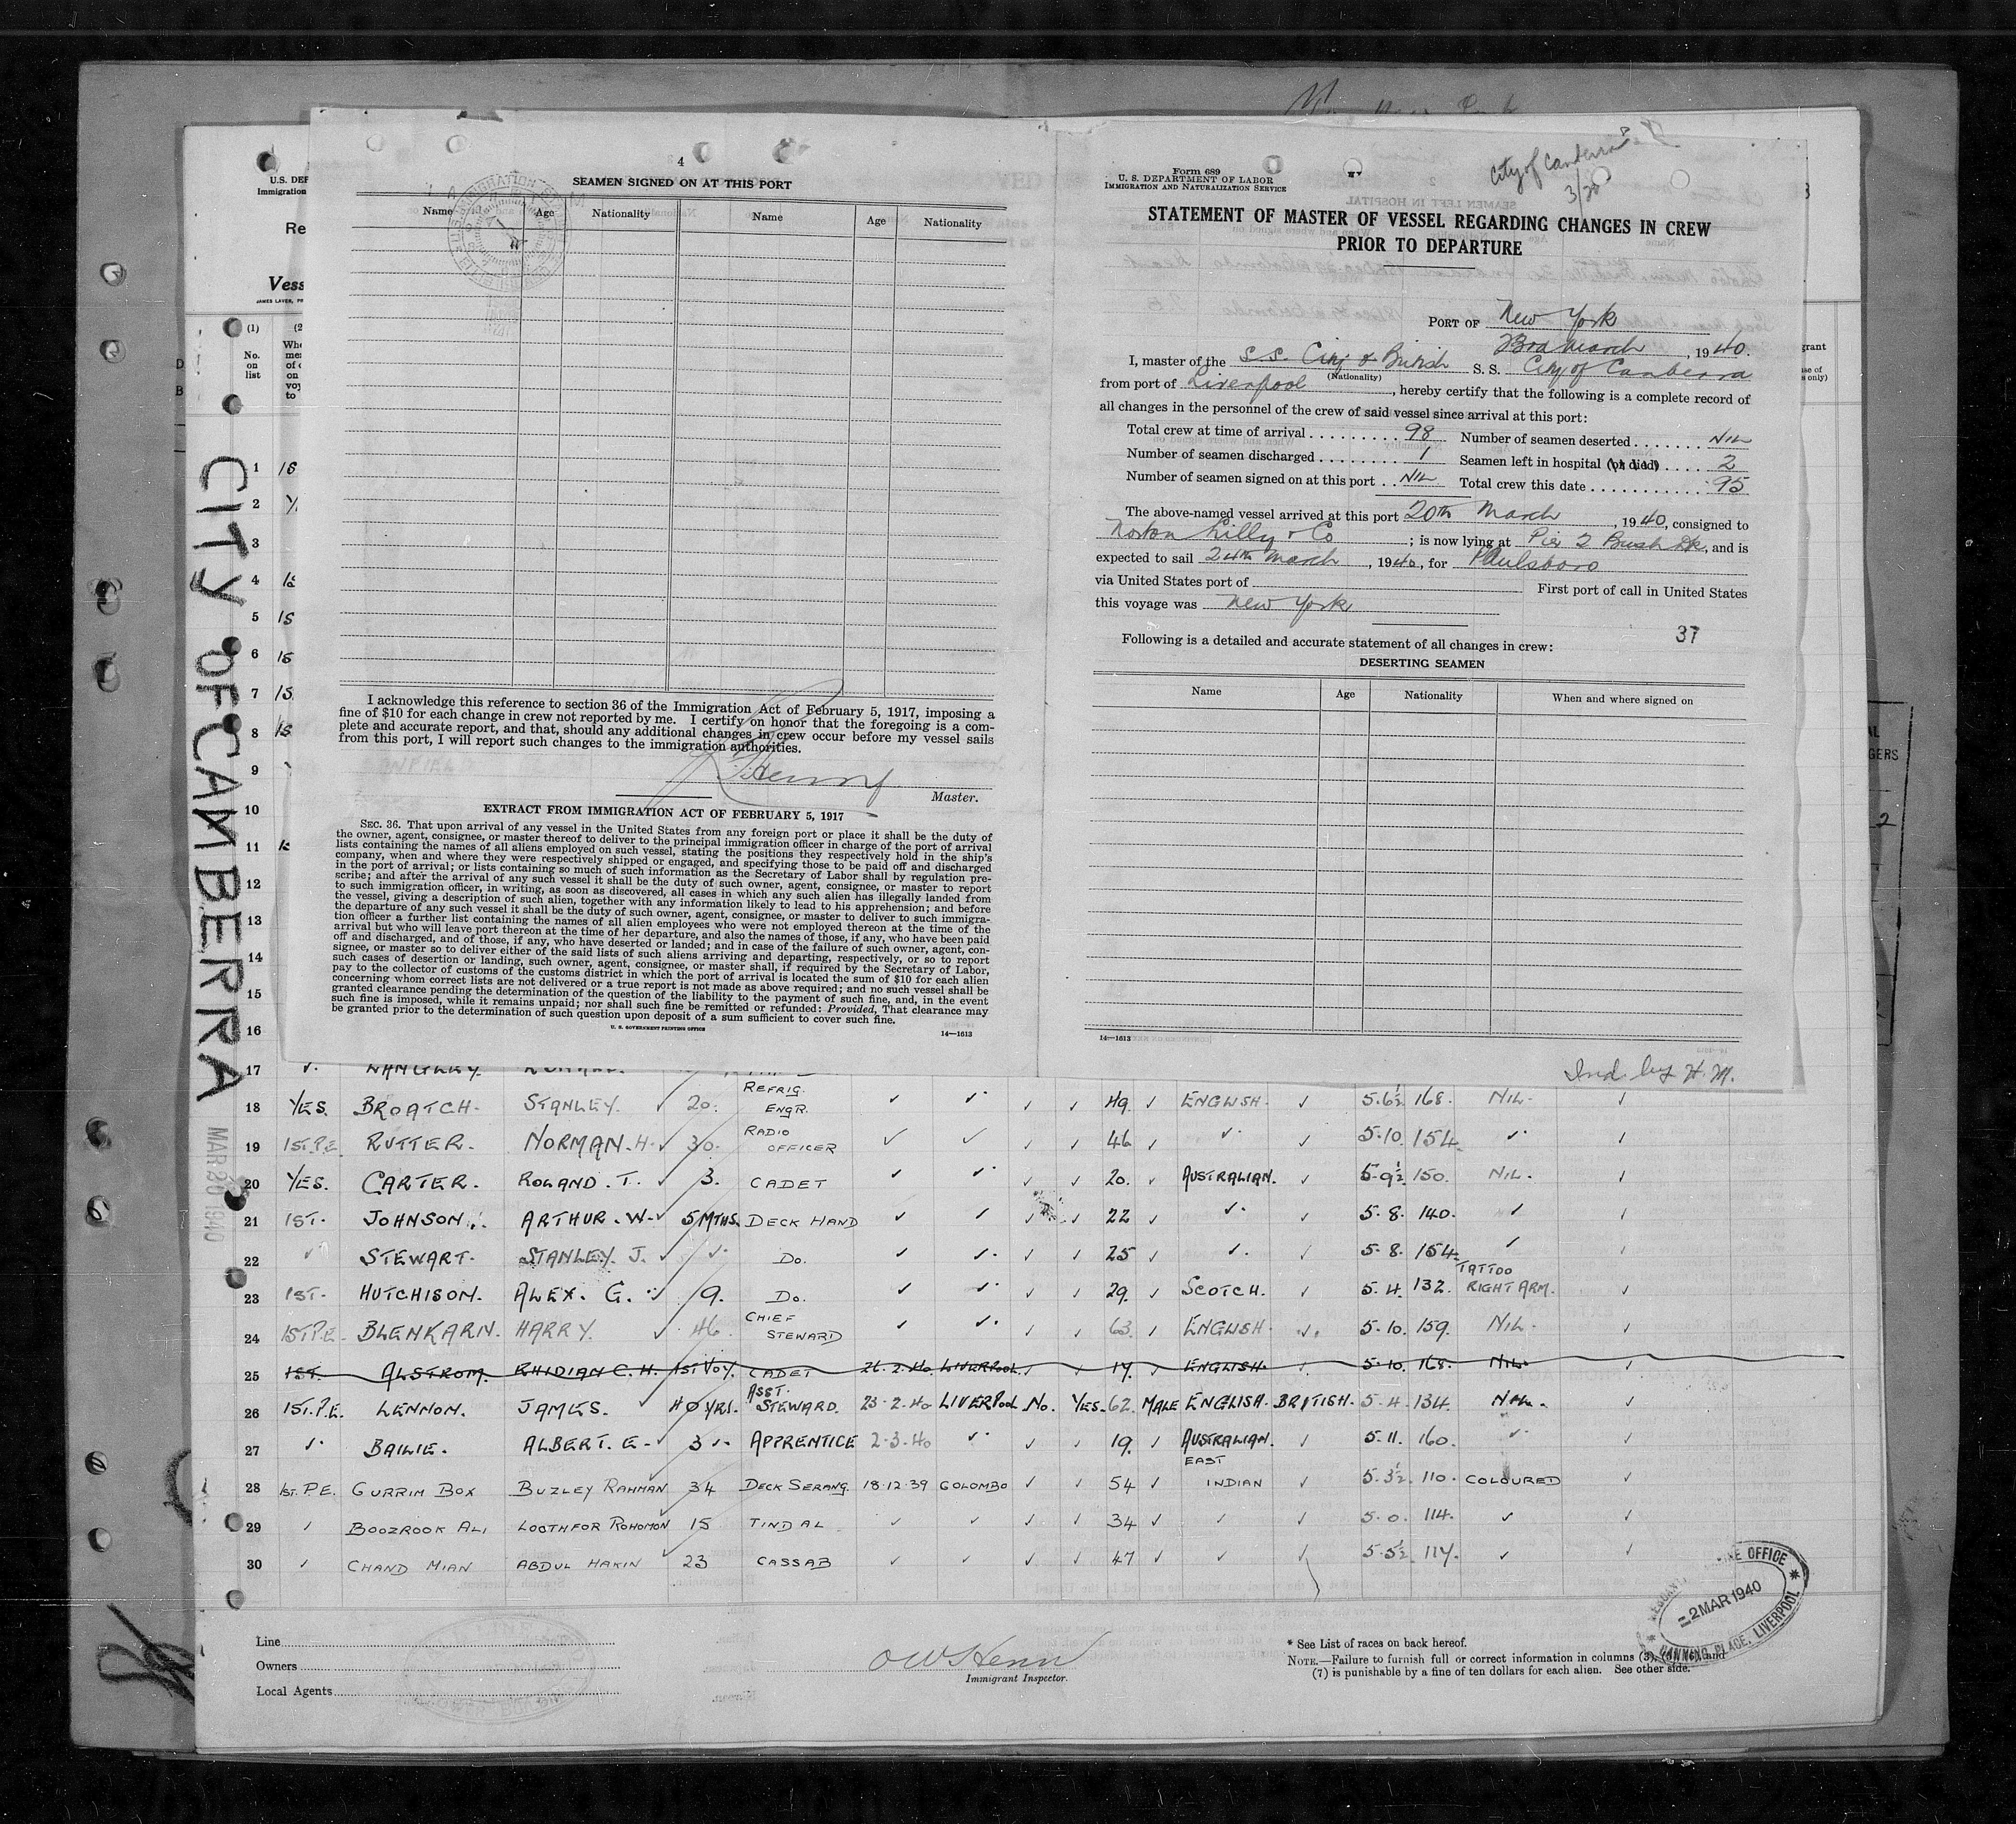 4
SEAMEN SIGNED ON AT THIS PORT
Name Age Nationality Name Age Nationality
I acknowledge this reference to section 36 of the Immigration Act of February 5, 1917, imposing a
fine of $10 for each change in crew not reported by me. I certify on honor that the foregoing is a com-
plete and accurate report, and that, should any additional changes in crew occur before my vessel sails
from this port, I will report such changes to the immigration authorities.
Master.
EXTRACT FROM IMMIGRATION ACT OF FEBRUARY 5, 1917
SEC. 36. That upon arrival of any vessel in the United States from any foreign port or place it shall be the duty of
the owner, agent, consignee, or master thereof to deliver to the principal immigration officer in charge of the port of arrival
lists containing the names of all aliens employed on such vessel, stating the positions they respectively hold in the ship's
company, when and where they were respectively shipped or engaged, and specifying those to be paid off and discharged
in the port of arrival; or lists containing so much of such information as the Secretary of Labor shall by regulation pre-
scribe; and after the arrival of any such vessel it shall be the duty of such owner, agent, consignee, or master to report
to such immigration officer, in writing, as soon as discovered, all cases in which any such alien has illegally landed from
the vessel, giving a description of such alien, together with any information likely to lead to his apprehension; and before
the departure of any such vessel it shall be the duty of such owner, agent, consignee, or master to deliver to such immigra-
tion officer a further list containing the names of all alien employees who were not employed thereon at the time of the
arrival but who will leave port thereon at the time of her departure, and also the names of those, if any, who have been paid
off and discharged, and of those, if any, who have deserted or landed; and in case of the failure of such owner, agent, con-
signee, or master so to deliver either of the said lists of such aliens arriving and departing, respectively, or so to report
such cases of desertion or landing, such owner, agent, consignee, or master shall, if required by the Secretary of Labor,
pay to the collector of customs of the customs district in which the port of arrival is located the sum of $10 for each alien
concerning whom correct lists are not delivered or a true report is not made as above required; and no such vessel shall be
granted clearance pending the determination of the question of the liability to the payment of such fine, and, in the event
such fine is imposed, while it remains unpaid; nor shall such fine be remitted or refunded: Provided, That clearance may
be granted prior to the determination of such question upon deposit of a sum sufficient to cover such fine.
U. S. GOVERNMENT PRINTING OFFICE 14—1613
City of Canberra
3/20
Form 689
U. S. DEPARTMENT OF LABOR
IMMIGRATION AND NATURALIZATION SERVICE
STATEMENT OF MASTER OF VESSEL REGARDING CHANGES IN CREW
PRIOR TO DEPARTURE
PORT OF New York
March, 1940.
I, master of the S.S. City of British S. S. City of Canberra
(Nationality)
from port of Liverpool, hereby certify that the following is a complete record of
all changes in the personnel of the crew of said vessel since arrival at this port:
Total crew at time of arrival 98 Number of seamen deserted NIL
Number of seamen discharged 1 Seamen left in hospital (or died) 2
Number of seamen signed on at this port NIL Total crew this date 95
The above-named vessel arrived at this port 20th March, 1940, consigned to
Norton Lilly & Co; is now lying at Pier 2 Bush Dk, and is
expected to sail 24th March, 1940, for Paulsboro
via United States port of First port of call in United States
this voyage was New York
37
Following is a detailed and accurate statement of all changes in crew:
DESERTING SEAMEN
Name Age Nationality When and where signed on
14—1613
Ind. by H. M.
CITY OF CANBERRA
MAR 20 1940
(1)
No.
on
list
1
2
3
4
5
6
7
8
9
10
11
12
13
14
15
16
17 ✓ LANGLEY
18 YES. BROATCH. STANLEY. ✓ 20. REFRIG. ENGR. ✓ ✓ ✓ ✓ 49. ✓ ENGLISH. ✓ 5.6½ 168. NIL. ✓
19 1ST.P.E. RUTTER. NORMAN.H. ✓ 30. RADIO OFFICER ✓ ✓ ✓ ✓ 46 ✓ ✓ ✓ 5.10. 154. ✓ ✓
20 YES. CARTER. ROLAND.T. ✓ 3. CADET ✓ ✓ ✓ ✓ 20. ✓ AUSTRALIAN. ✓ 5.9½ 150. NIL. ✓
21 1ST. JOHNSON. ARTHUR.W. ✓ 5 MTHS. DECK HAND ✓ ✓ ✓ ✓ 22 ✓ ✓ ✓ 5.8. 140. ✓ ✓
22 ✓ STEWART. STANLEY J. ✓ ✓ DO. ✓ ✓ ✓ ✓ 25 ✓ ✓ ✓ 5.8. 154. ✓ ✓
23 1ST. HUTCHISON. ALEX. G. ✓ 9. DO. ✓ ✓ ✓ ✓ 29. ✓ SCOTCH. ✓ 5.4. 132. TATTOO RIGHT ARM. ✓
24 1ST P.E. BLENKARN. HARRY. ✓ 46. CHIEF STEWARD ✓ ✓ ✓ ✓ 63. ✓ ENGLISH. ✓ 5.10. 159. NIL. ✓
25 1ST. ALSTROM. RHIDIAN C.H. 1ST VOY. CADET 26.2.40 LIVERPOOL ✓ ✓ 17. ✓ ENGLISH. ✓ 5.10. 168. NIL. ✓
26 1ST.P.E. LENNON. JAMES. ✓ 40 YRS. ASST. STEWARD. 23.2.40 LIVERPOOL No. YES. 62. MALE ENGLISH. BRITISH. 5.4. 134. NIL. ✓
27 ✓ BAILIE. ALBERT.E. ✓ 3 ✓ APPRENTICE 2.3.40 ✓ ✓ ✓ 19. ✓ AUSTRALIAN. ✓ 5.11. 160. ✓ ✓
28 1ST.P.E. GURRIM BOX BUZLEY RAHMAN 34 DECK SERANG. 18.12.39 COLOMBO ✓ ✓ 54 ✓ EAST INDIAN ✓ 5.3½ 110. COLOURED ✓
29 ✓ BOOZROOK ALI LOOTHFOR ROHOMON 15 TINDAL ✓ ✓ ✓ ✓ 34 ✓ ✓ ✓ 5.0. 114. ✓ ✓
30 ✓ CHAND MIAN ABDUL HAKIN ✓ 23 CASSAB ✓ ✓ ✓ ✓ 47 ✓ ✓ ✓ 5.5½ 117. ✓ ✓
Line
Owners
Local Agents
Immigrant Inspector.
* See List of races on back hereof.
NOTE.—Failure to furnish full or correct information in columns (3), and
(7) is punishable by a fine of ten dollars for each alien. See other side.
OFFICE
2 MAR 1940
CANNING PLACE, LIVERPOOL